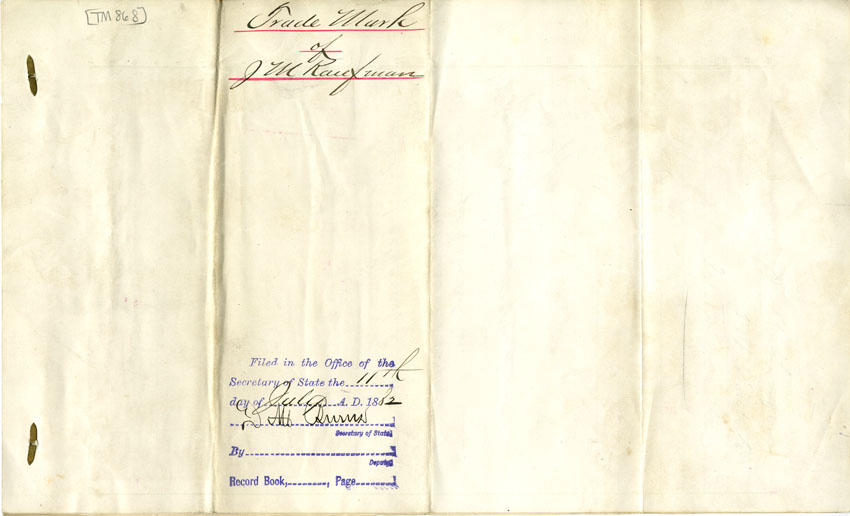 [TM 868]
Trade Mark
of
J M Kaufman
Filed in the Office of the
Secretary of State the 11th
day of July A. D. 1882
D M Burns
Secretary of State
By
Deputy
Record Book, , Page